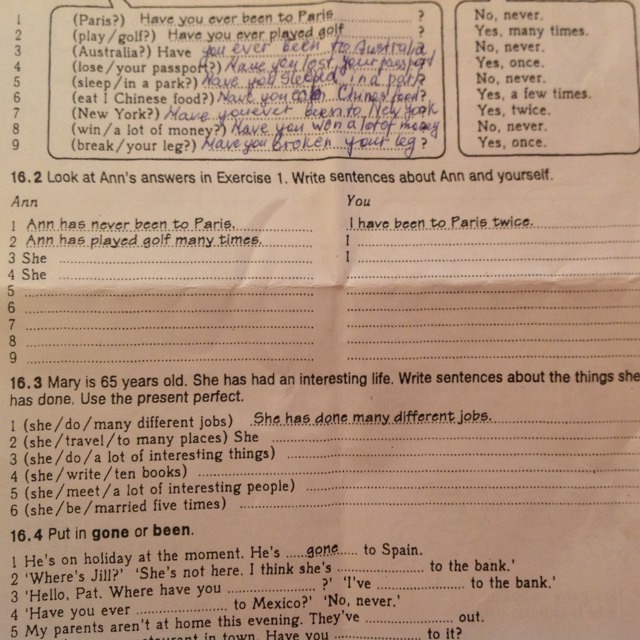 1 (Paris?) Have you ever been to Paris ? No, never.
2 (play/golf?) Have you ever played golf ? Yes, many times.
3 (Australia?) Have you ever been to Australia No, never.
4 (lose/your passport?) Have you lost your passport Yes, once.
5 (sleep/in a park?) Have you sleeped in a park No, never.
6 (eat I Chinese food?) Have you Chines food? Yes, a few times.
7 (New York?) Have you ever been to New York Yes, twice.
8 (win/a lot of money?) Have you won a lot of money No, never.
9 (break/your leg?) Have you broken your leg? Yes, once.
16.2 Look at Ann's answers in Exercise 1. Write sentences about Ann and yourself.
Ann You
1 Ann has never been to Paris. I have been to Paris twice.
2 Ann has played golf many times. I
3 She I
4 She
5
6
7
8
9
16.3 Mary is 65 years old. She has had an interesting life. Write sentences about the things she
has done. Use the present perfect.
1 (she/do/many different jobs) She has done many different jobs.
2 (she/travel/to many places) She
3 (she/do/a lot of interesting things)
4 (she/write/ten books)
5 (she/meet/a lot of interesting people)
6 (she/be/married five times)
16.4 Put in gone or been.
1 He's on holiday at the moment. He's gone to Spain.
2 'Where's Jill?' 'She's not here. I think she's to the bank.'
3 'Hello, Pat. Where have you ?' 'I've to the bank.'
4 'Have you ever to Mexico?' 'No, never.'
5 My parents aren't at home this evening. They've out.
restaurant in town. Have you to it?